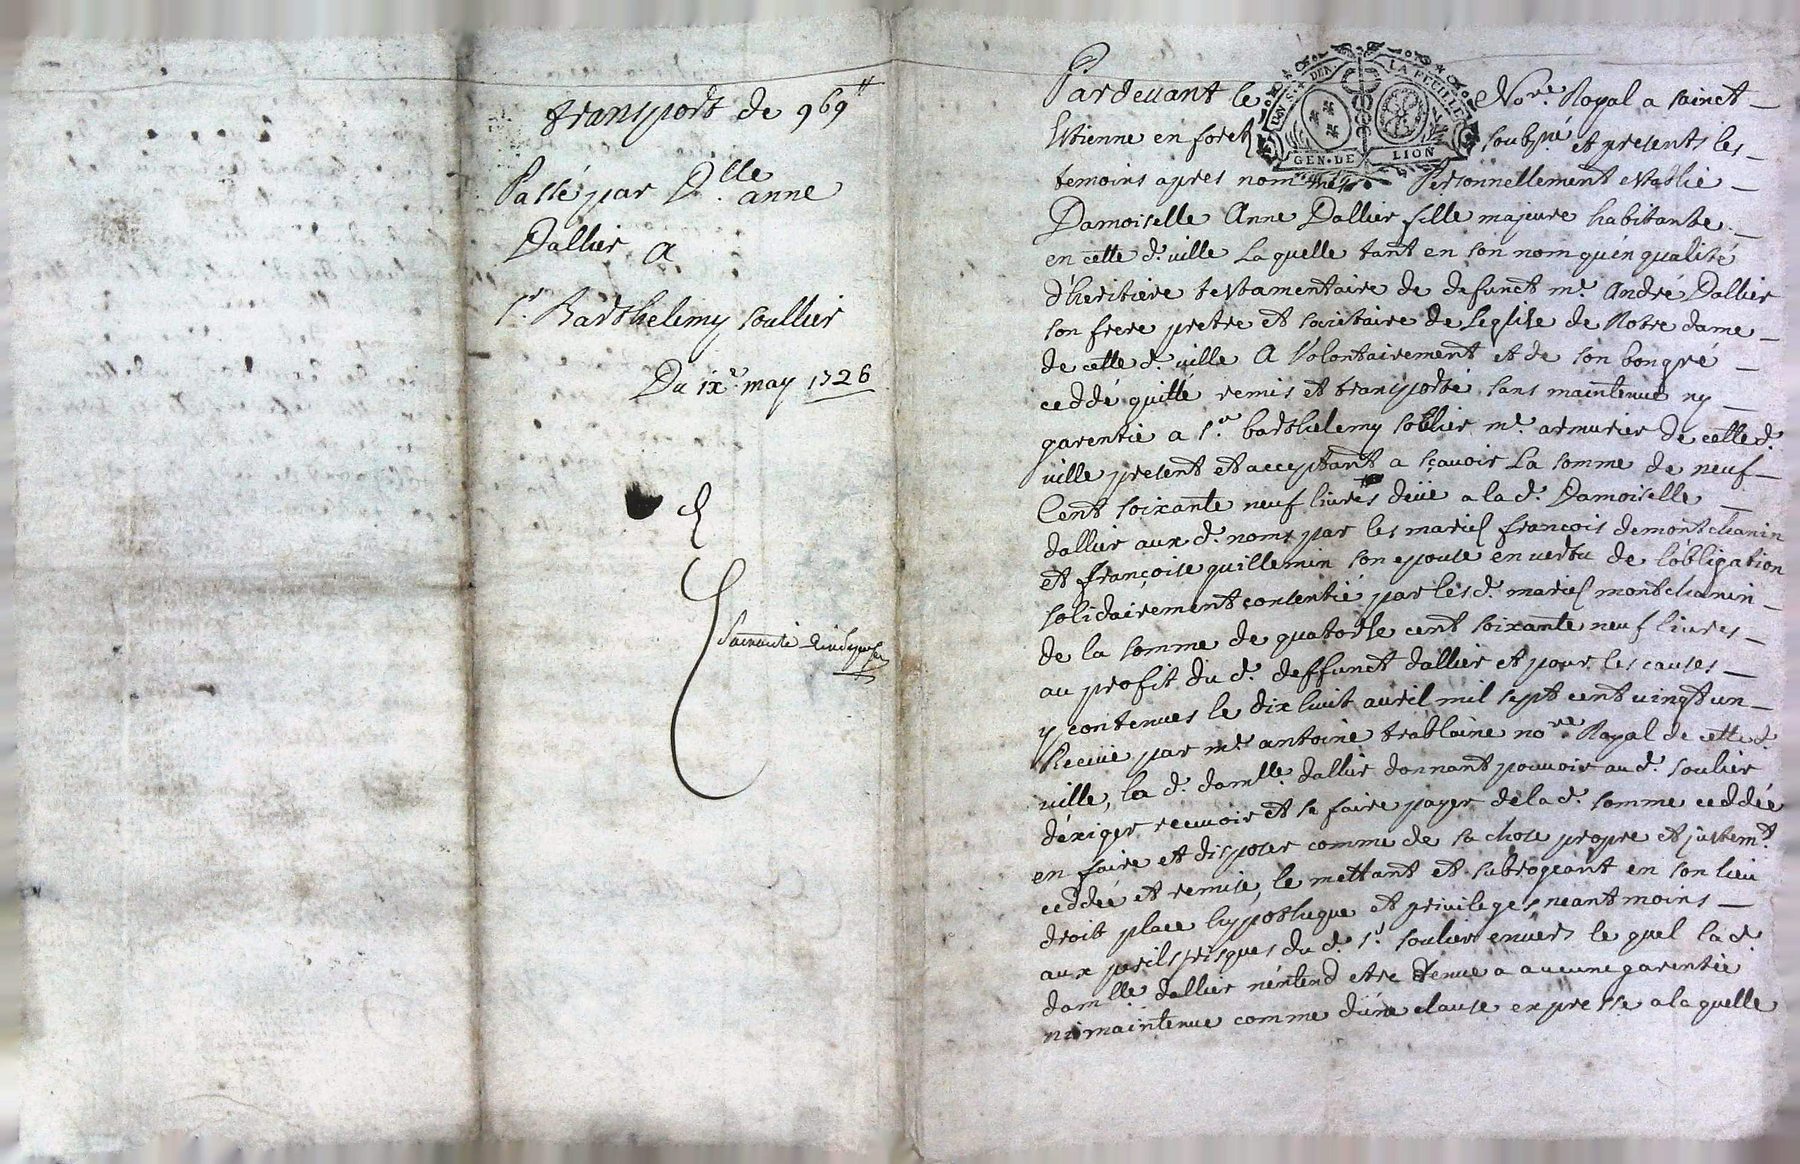 transport de 969 ₶
Passé par D.lle anne
Dallier a
s.r Barthelemy soullier
Du ix.e may 1726
Pardevant le No.re Royal a sainct
Estienne en forest soubz.né et presents les
temoins apres nommés. Personnellement establie
Damoiselle Anne Dallier fille majeure habitante
en cette d. ville Laquelle tant en son nom qu'en qualité
d'heritiere testamentaire de defunct m.e André Dallier
son frere pretre et societaire de Leglise de Notre dame
de cette d. ville A Volontairement et de son bon gré
ceddé quitté remis et transporté sans maintenue ny
garentie a s.r barthelemy sollier m.e armurier de cette d.
ville present et acceptant a sçavoir La somme de neuf
Cent soixante neuf livres deüe a la d. Damoiselle
dallier aux d. noms par les mariés françois demontchanin
et françoise guillemin son epouse en vertu de lobligation
solidairement consentie par les d. mariés montchanin
de la somme de quatorse cent soixante neuf livres
au profit du d. deffunct dallier et pour les causes
y contenues le dix huit avril mil sept cent vingt un
Receüe par m.e antoine trablaine no.re Royal de cette d.
ville, la d. dam.lle dallier donnant pouvoir au d. soulier
d'exiger recevoir et se faire payer de la d. somme ceddée
en faire et disposer comme de sa chose propre et justem.t
ceddée et remise, le mettant et subrogeant en son lieu
droit place hyppotheque et privileges neantmoins
aux perils risques du d. s.r soulier envers le quel la d.
dam.lle dallier n'entend etre tenue a aucune garentie
ni maintenue comme d'une clause expresse a la quelle
DEN. LA FEUILLE
GEN. DE LION